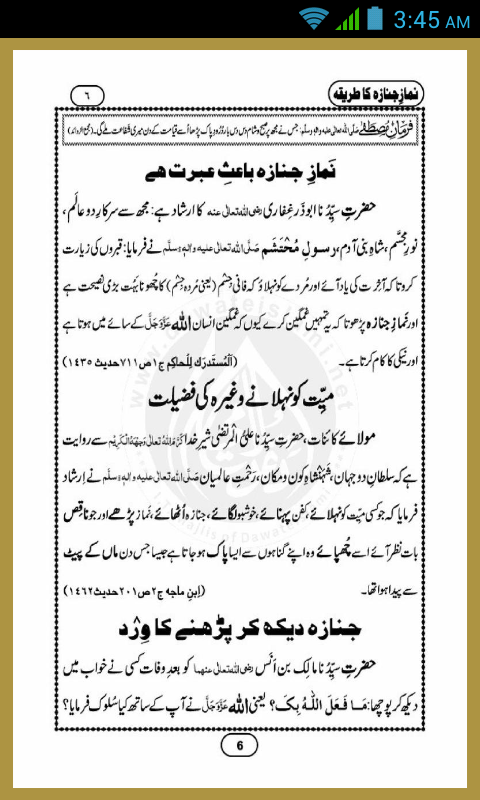 3:45 AM
نمازِ جنازہ کا طریقہ
٦
فرمانِ مصطفےٰ صلی اللہ تعالیٰ علیہ والہ وسلم: جس نے مجھ پر صبح و شام دس دس بار دُرُود پاک پڑھا اُسے قیامت کے دن میری شفاعت ملے گی۔ (مجمع الزوائد)
نَمازِ جنازہ باعثِ عبرت ہے
حضرتِ سیِّدُنا ابوذَر غِفاری رضی اللہ تعالی عنہ کا ارشاد ہے: مجھ سے سرکارِ دو عالَم،
نورِ مجسَّم، شاہِ بنی آدم، رسولِ مُحْتَشَم صَلَّی اللہ تعالٰی علیہ والہٖ وسلَّم نے فرمایا: قبروں کی زیارت
کرو تاکہ آخِرت کی یاد آئے اور مُردے کو نہلاؤ کہ فانی جِسْم (یعنی مُردہ جِسْم) کا چُھونا بَہُت بڑی نصیحت ہے
اور نَمازِ جنازہ پڑھو تاکہ یہ تمہیں غمگین کرے کیوں کہ غمگین انسان اللہ عَزَّوَجَلَّ کے سائے میں ہوتا ہے
اور نیکی کا کام کرتا ہے۔ (اَلْمُستَدرَك لِلْحاكِم ج١ ص٧١١ حدیث ١٤٣٥)
میِّت کو نہلانے وغیرہ کی فضیلت
مولائے کائنات، حضرتِ سیِّدُنا علیُّ الْمُرتَضٰی شیرِ خدا کَرَّمَ اللہُ تعالٰی وَجْہَہُ الْکَرِیْم سے روایت
ہے کہ سلطانِ دو جہان، شَہَنْشاہِ کون و مکان، رَحْمتِ عالمیان صَلَّی اللہ تعالٰی علیہ والہٖ وسلَّم نے اِرشاد
فرمایا کہ جو کسی میِّت کو نہلائے، کفن پہنائے، خوشبو لگائے، جنازہ اُٹھائے، نَماز پڑھے اور جو ناقِص
بات نظر آئے اسے چُھپائے وہ اپنے گناہوں سے ایسا پاک ہو جاتا ہے جیسا جس دن ماں کے پیٹ
سے پیدا ہوا تھا۔ (اِبنِ ماجہ ج٢ ص٢٠١ حدیث ١٤٦٢)
جنازہ دیکھ کر پڑھنے کا وِرْد
حضرتِ سیِّدُنا مالِک بن اَنَس رضی اللہ تعالی عنہما کو بعدِ وفات کسی نے خواب میں
دیکھ کر پوچھا: مَا فَعَلَ اللّٰہُ بِکَ؟ یعنی اللہ عَزَّوَجَلَّ نے آپ کے ساتھ کیا سُلوک فرمایا؟
6